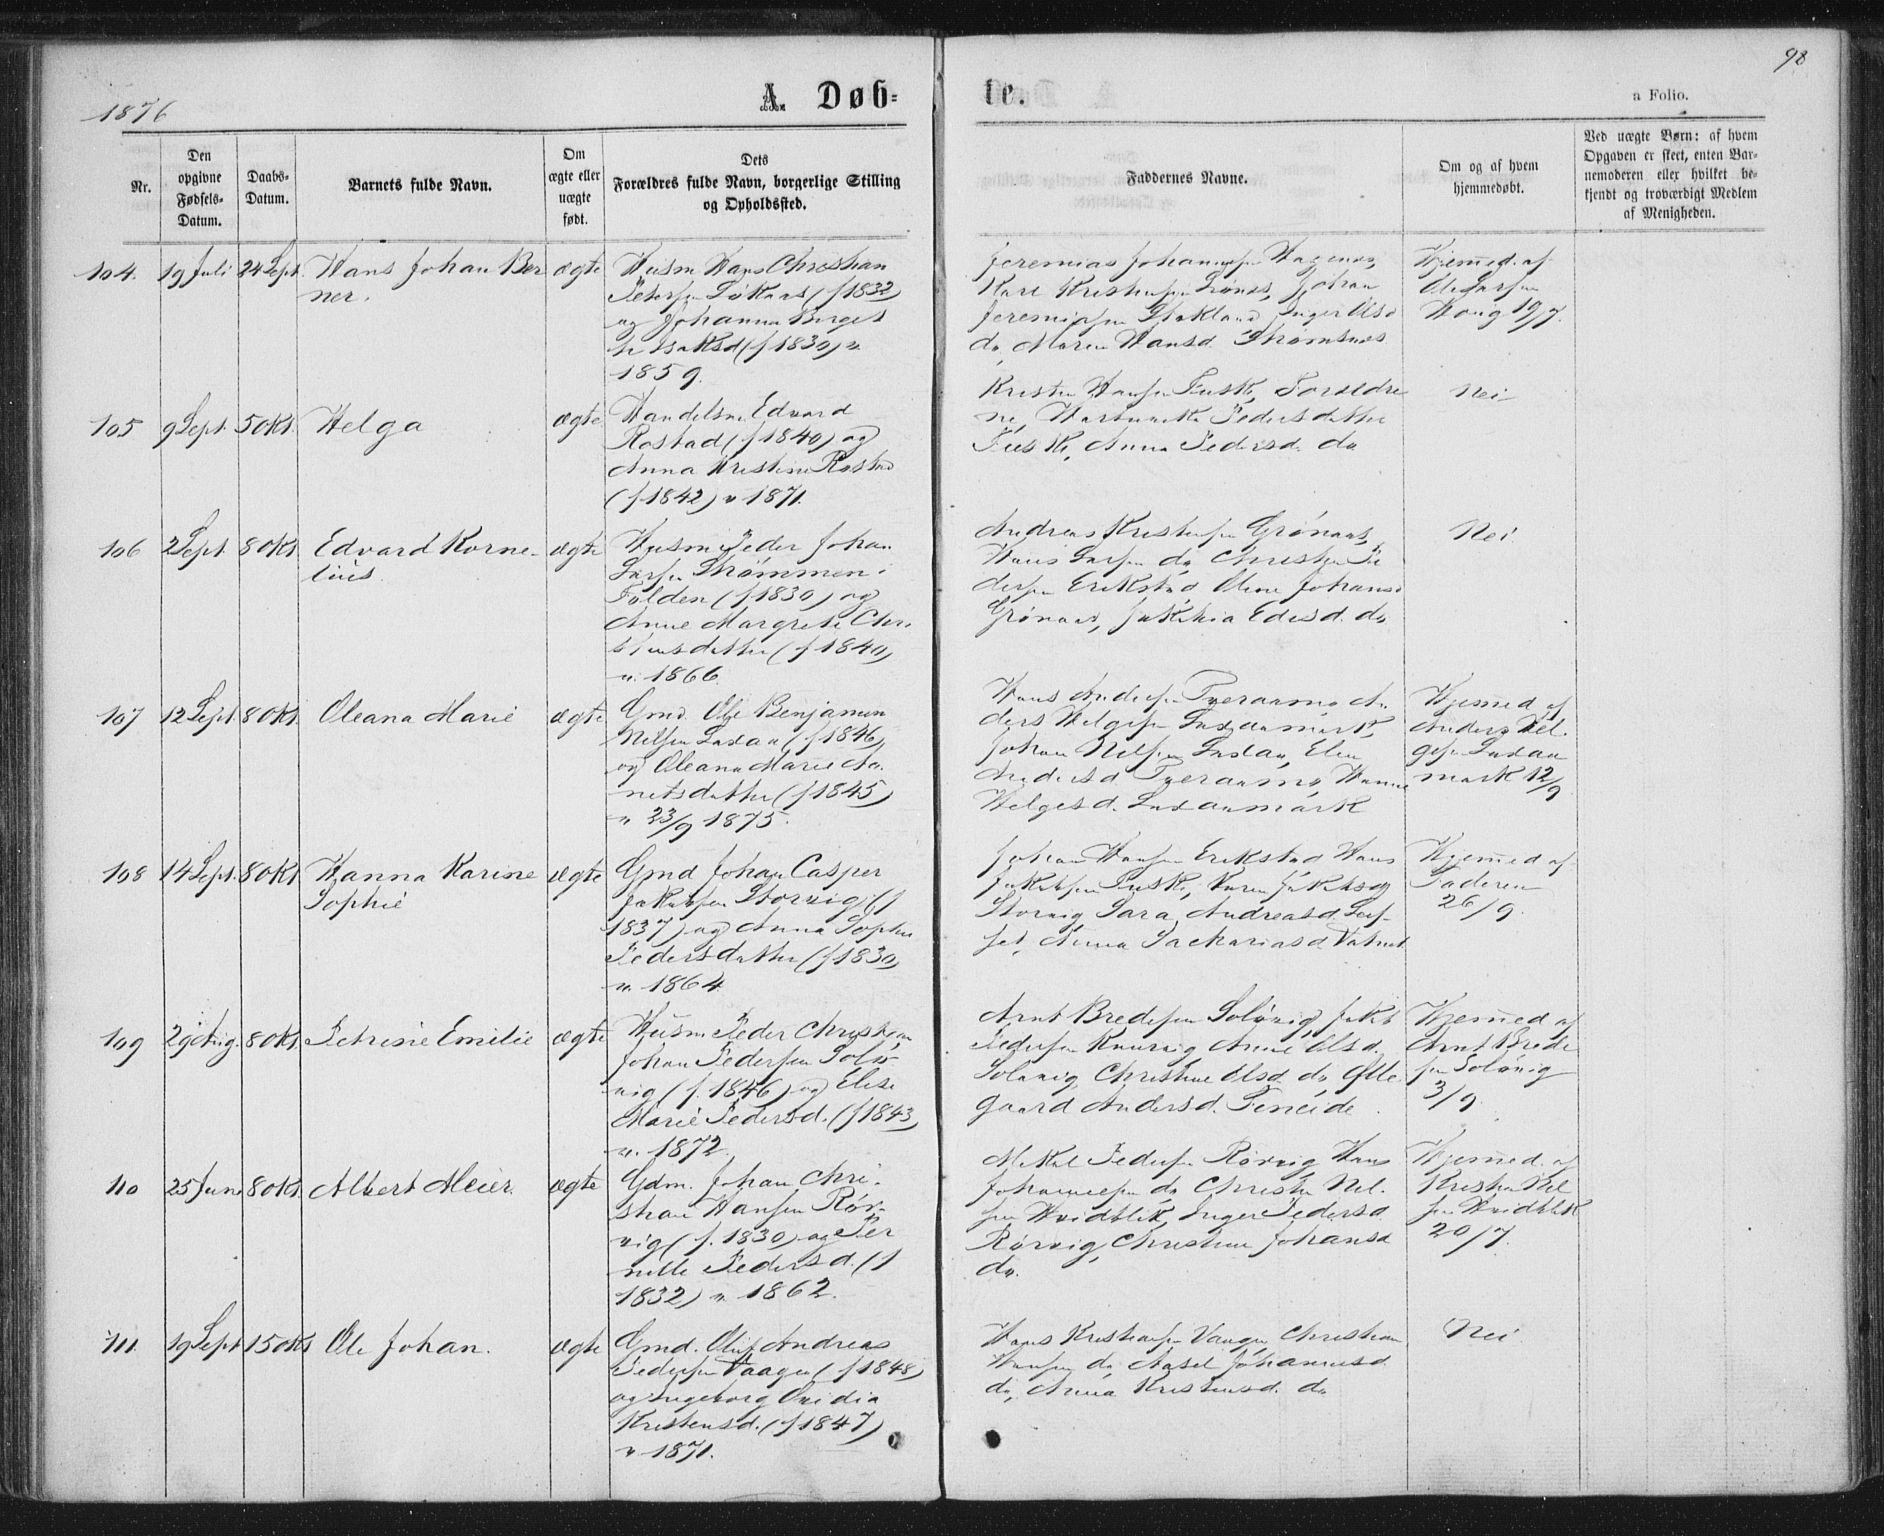 1876
A. Døb-
te.
98
a Folio.
Nr.
Den opgivne Fødsels-Datum.
Daabs-Datum.
Barnets fulde Navn.
Om ægte eller uægte født.
Dets Forældres fulde Navn, borgerlige Stilling og Opholdssted.
Faddernes Navne.
Om og af hvem hjemmedøbt.
Ved uægte Børn: af hvem Opgaven er skeet, enten Bar-nemoderen eller hvilket be-kjendt og troværdigt Medlem af Menigheden.
104. 19 Juli 24 Sept. Hans Johan Ber
ner.
ægte
Husm Hans Christian
Petersen (f 1832)
og Johanna Berget
te Isaksd (f 1830) v.
1859.
Jeremias Johannesen
Karl Kristensen Johan
Jeremiasen Inger Olsd
do, Maren Hansd. Strømsnes
Hjemmed. af
Ole Larsen
Haug 19/7.
105 9 Sept. 5 Okt. Helga
ægte
Handelsm Edvard
Rostad (f 1840) og
Anna Kristine Rostad
(f 1842) v 1871.
Kristen Hansen Fuske, Forældre
ne, Pedersdatter
Fuske, Anna Pedersd. do
Nei
106 2 Sept. 8 Okt. Edvard Korne-
lius.
ægte
Husm Peder Johan
Larsen Strømmen i
Folden (f 1830) og
Anne Margrete Chri
stensdatter (f 1840)
v. 1866.
Andreas Kristensen Grønaas,
Hans Larsen do, Christen Pe
dersen Erikstad, Oline Johansd
Grønaas, do
Nei
107 12 Sept. 8 Okt. Oleana Marie
ægte
Gmd. Ole Benjamin
Nilsen Laxaa (f 1846)
og Oleana Marie
netsdatter (f 1845)
v 23/9 1875.
Hans Andersen Tveraamo, An
ders Helgesen Laxaamark,
Johan Nilsen Laxaa, Elen
Andersd Tveraamo, Hanna
Helgesd. Laxaamark
Hjemmed af
Anders Hel-
gesen Laxaa
mark 12/9
108 14 Sept. 8 Okt. Hanna Karine
Sophie
ægte
Gmd Johan Casper
Jakobsen Storvig (f
1837) og Anna Sophie
Pedersdatter (f 1830)
v. 1864
Johan Hansen Erikstad Hans
Jakobsen Fuske, Karen Jakobsd
Storvig Sara Andreasd.
Anna Sackariasd Vatnet
Hjemmed af
Faderen
26/9.
109 29 Aug. 8 Okt. Petrine Emilie
ægte
Husm Peder Christian
Johan Pedersen Solø-
vig (f. 1846) og Elise
Marie Pedersd. (f 1843)
v. 1872.
Arnt Bredesen Soløvig, Jakob
Pedersen Anne Olsd.
Soløvig, Christine Olsd do Olle
gaard Andersd. Feneide.
Hjemmed af
Arnt Brede
sen Soløvig
3/9
110 25 Juni 8 Okt. Albert Meier.
ægte
Gdm. Johan Chri-
stian Hansen Rør-
vig (f. 1830) og Per
nille Pedersd. (f
1832) v. 1862.
Mikal Pedersen Rørvig Hans
Johannesen do Christen Nil-
sen Hvidblik, Inger Pedersd
Rørvig, Christine Johansd
do.
Hjemmed. af
Kristen Nil
sen Hvidblik
20/7.
111. 19 Sept 15 Okt Ole Johan.
ægte
Gmd. Oluf Andreas
Pedersen Vaagen (f 1848)
og Ingeborg Ovidia
Kristensd. (f 1847)
v 1871.
Hans Kristensen Vaagen, Christian
Hansen do, Aasel Johannesd
do, Anna Kristensd. do
Nei